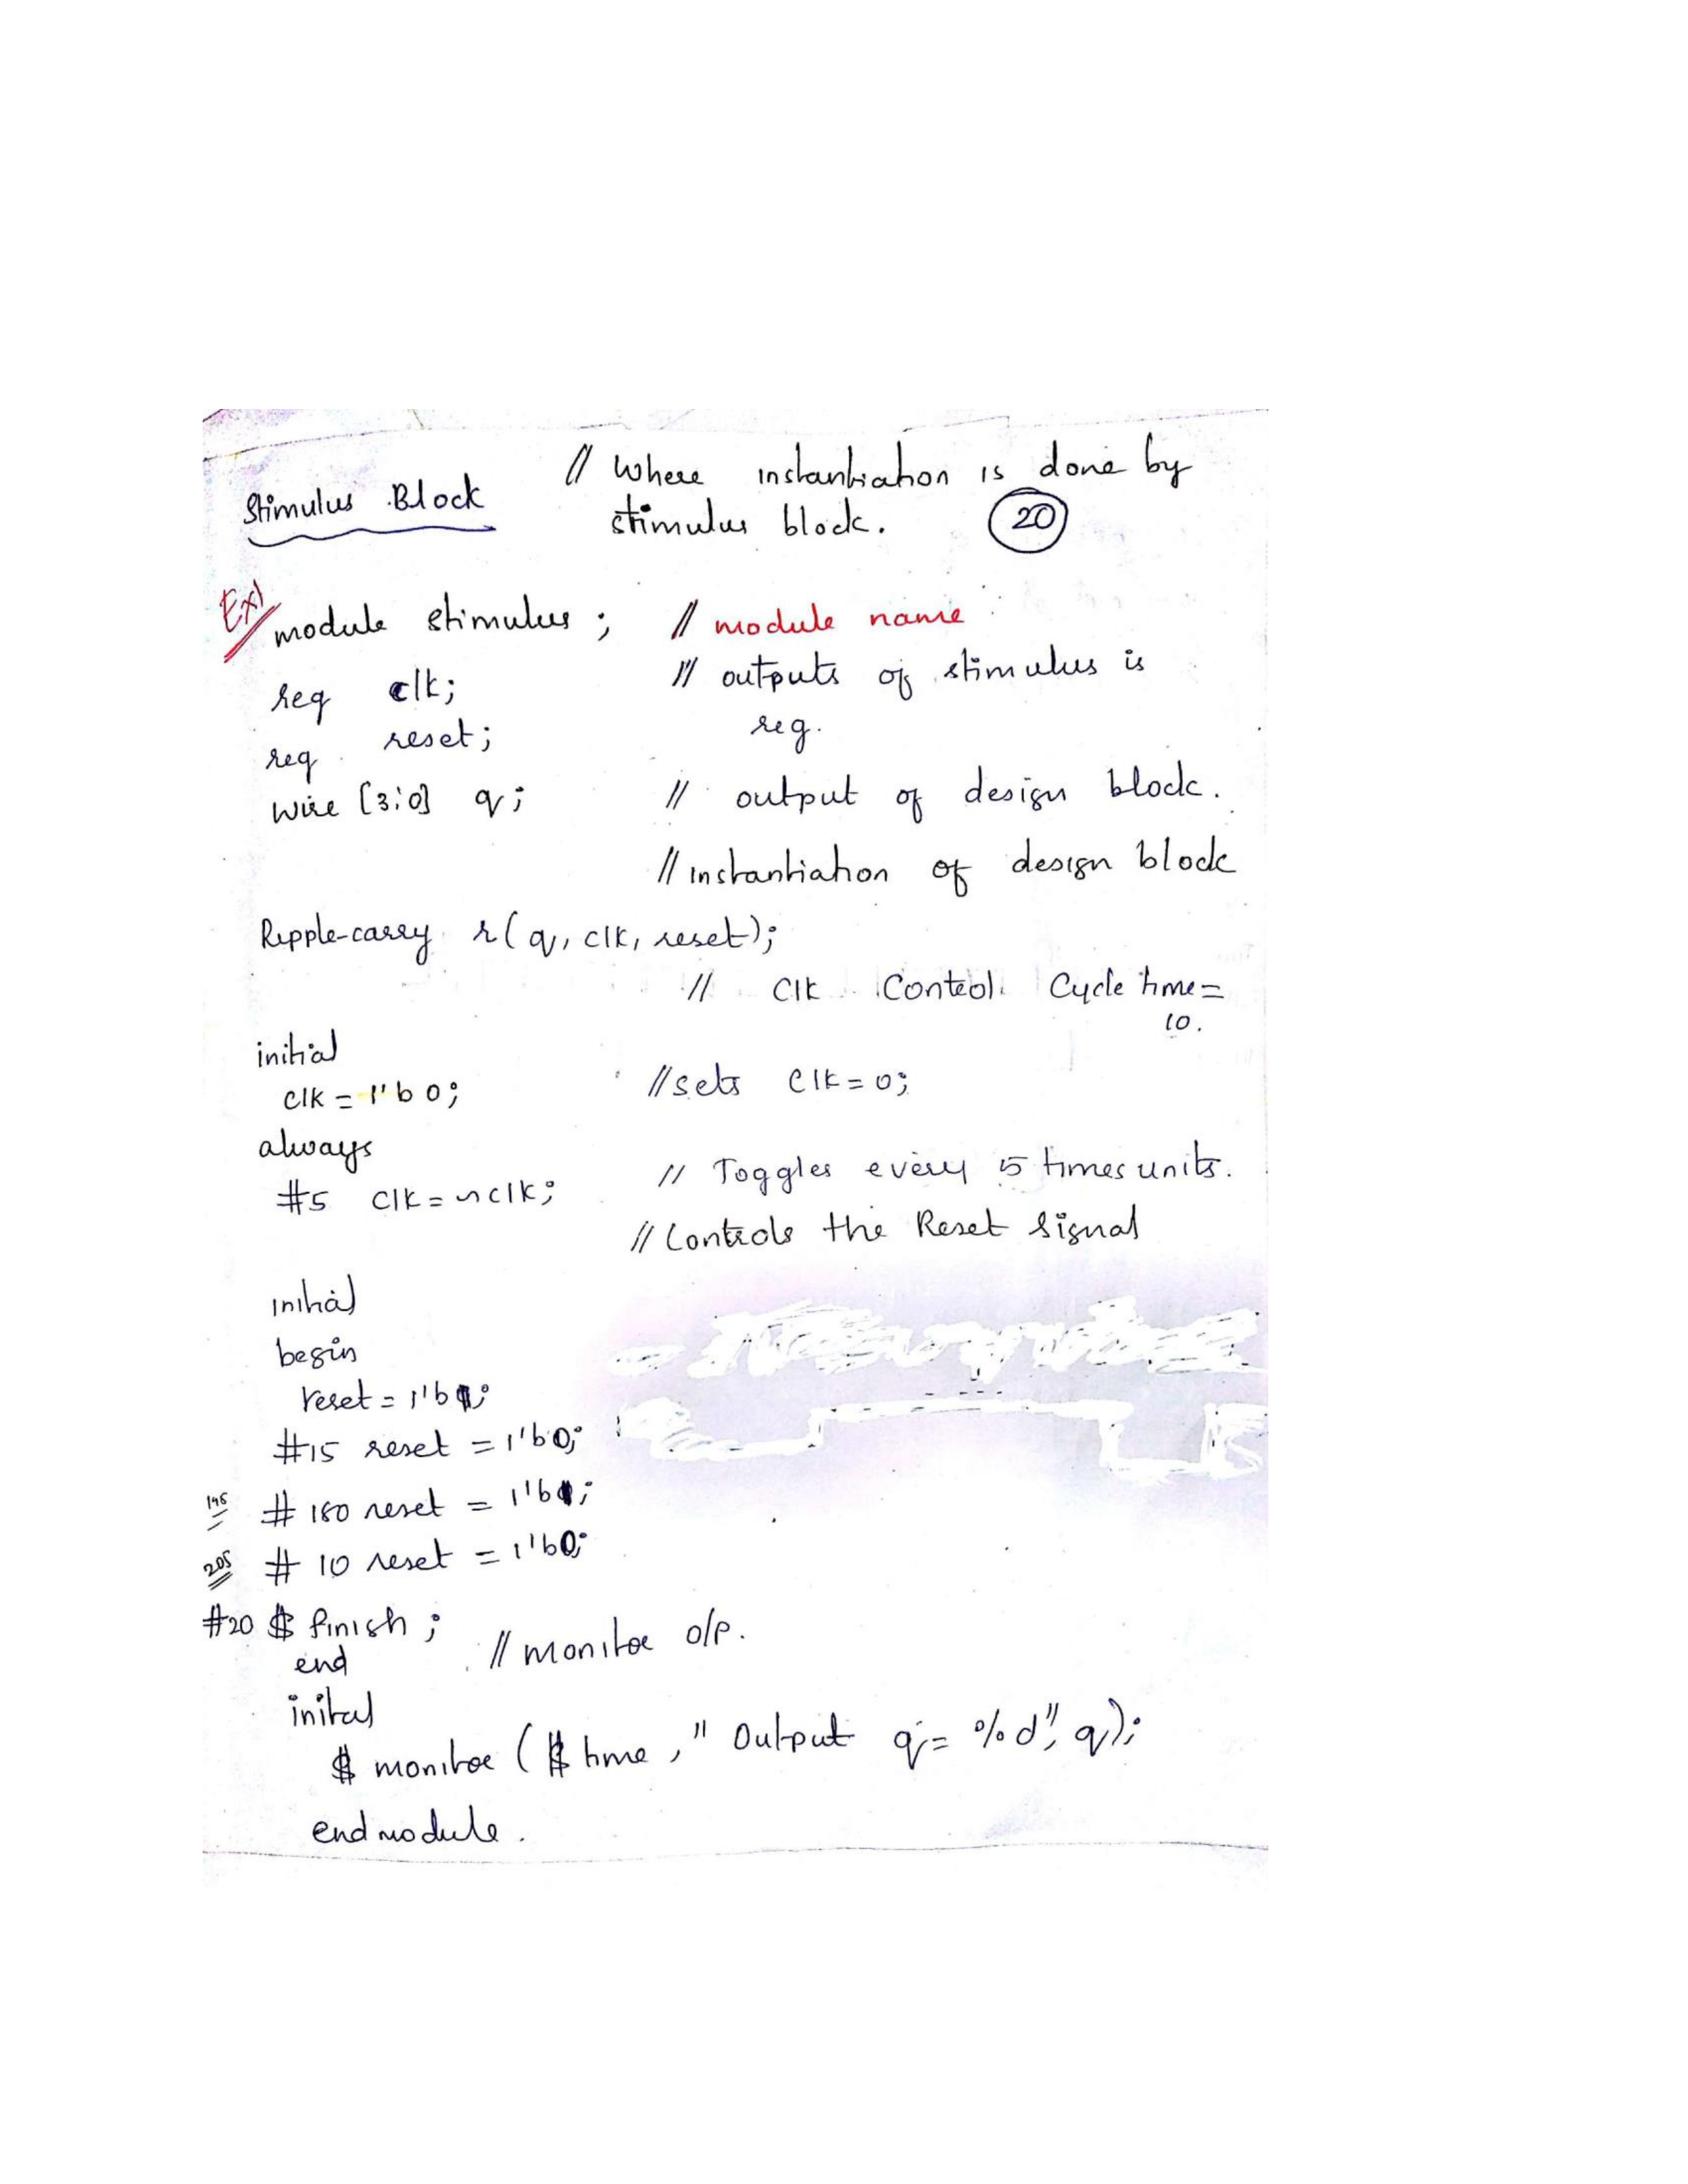 Stimulus Block // Where instantiation is done by
stimulus block. 20
Ex) module stimulus ; // module name
reg clk; // outputs of stimulus is
reg.
reg reset;
wire [3:0] q; // output of design block.
// instantiation of design block
Ripple-carry r(q, clk, reset);
// Clk Control Cycle time =
10.
initial
clk = 1'b0; // sets clk = 0;
always
#5 clk = ~clk; // Toggles every 5 times units.
// Controls the Reset Signal
initial
begin
reset = 1'b1;
#15 reset = 1'b0;
195 #180 reset = 1'b1;
205 #10 reset = 1'b0;
#20 $ finish ;
end // monitor o/p.
initial
$ monitor ($ time, "Output q = %d", q);
endmodule.